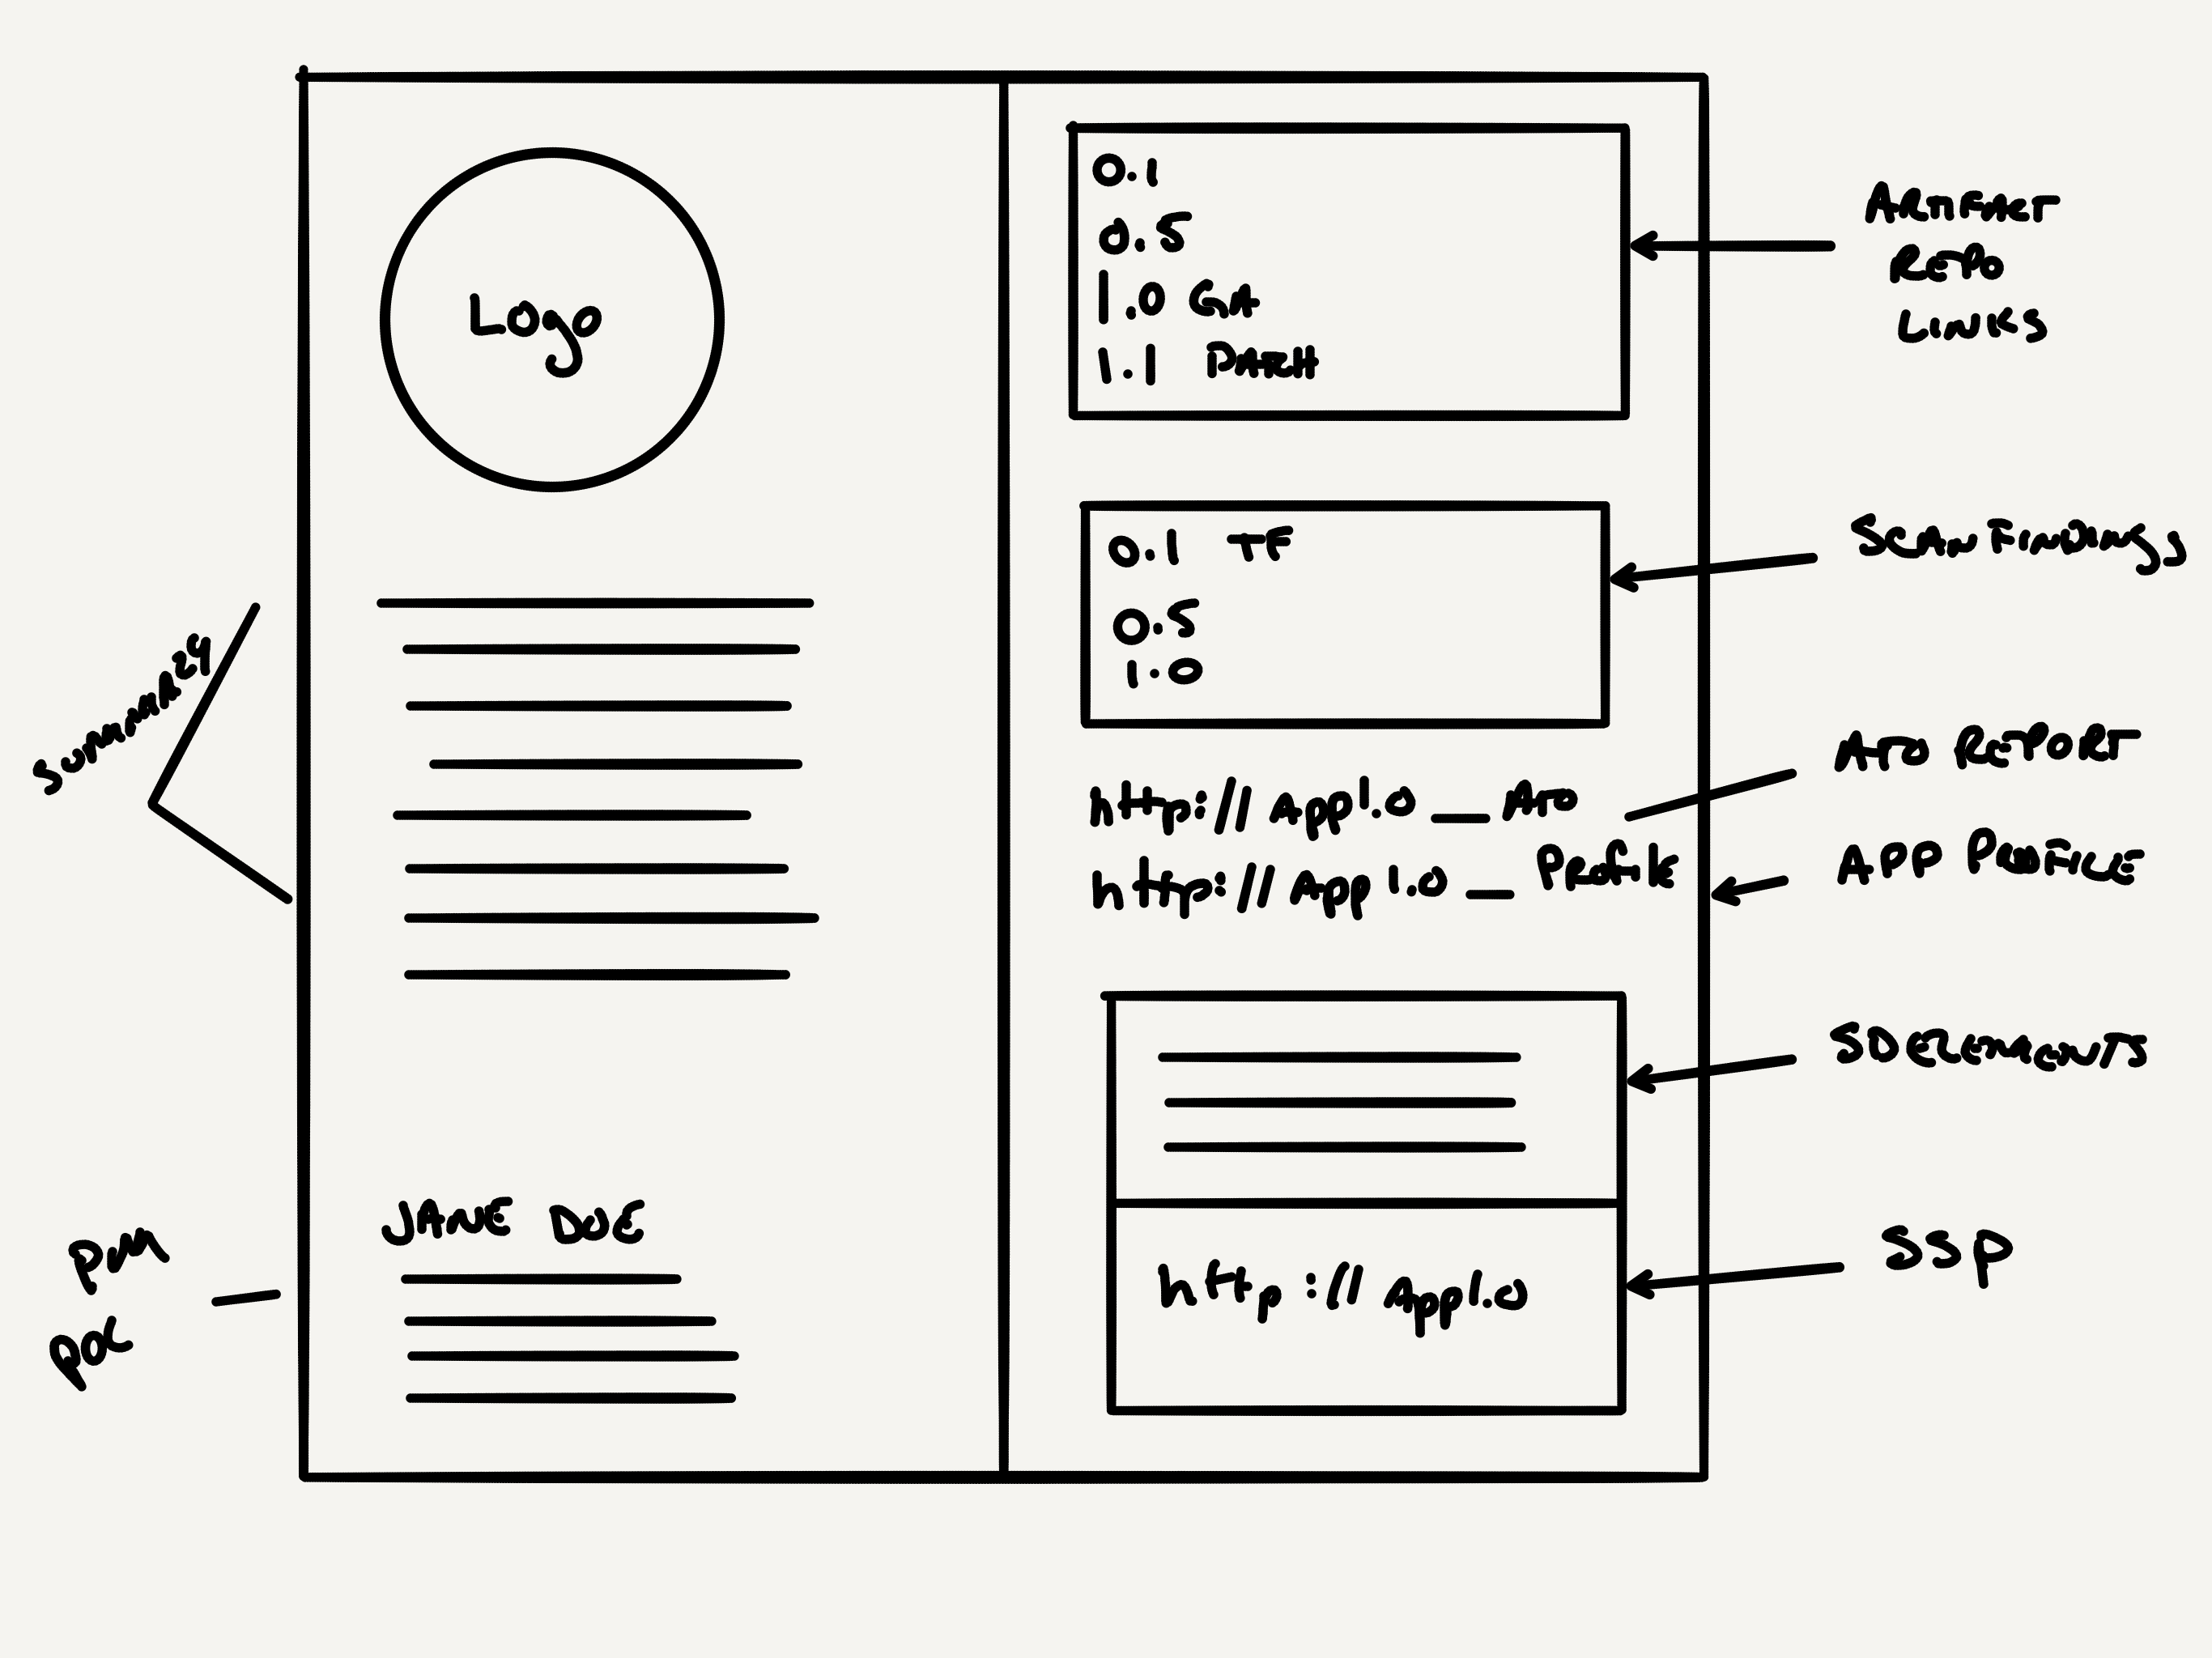 Logo
Summary
JANE DOE
PM
POC
0.1
0.5
1.0 GA
1.1 PATCH
ARTIFACT
REPO
LINKS
0.1 TF
0.5
1.0
SCAN FINDINGS
http://App1.0_ATO
ATO REPORT
http://App1.0_Profile
APP PROFILE
SD ELEMENTS
http://App1.0
SSP